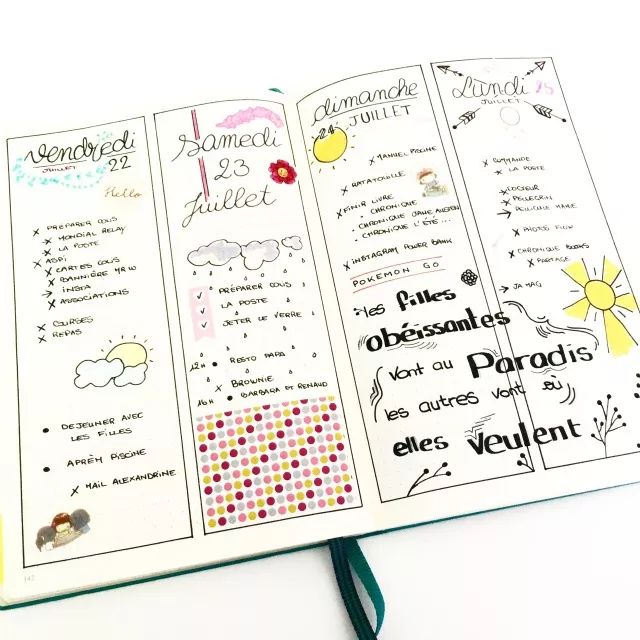 Vendredi
22
JUILLET
Hello
x PRÉPARER COLIS
x MONDIAL RELAY
x LA POSTE
x ASPI
x CARTES COLIS
x BANNIÈRE
→ INSTA
x ASSOCIATIONS
x COURSES
x REPAS
• DEJEUNER AVEC
LES FILLES
• APRÈM PISCINE
x MAIL ALEXANDRINE
142
Samedi
23
Juillet
✓ PRÉPARER COLIS
✓ LA POSTE
✓ JETER LE VERRE
12H • RESTO PAPA
x BROWNIE
16H • BARBARA ET RENAUD
dimanche
24
JUILLET
x MANUEL PISCINE
x RATATOUILLE
x FINIR LIVRE
• CHRONIQUE
• CHRONIQUE JANE AUSTEN
• CHRONIQUE L'ÉTÉ...
x INSTAGRAM POWER BANK
POKEMON GO
Lundi
25
JUILLET
x
x LA POSTE
x DOCTEUR
x PELLEGRIN
→ PELLICULE MARIE
x PHOTOS FLOW
x CHRONIQUE BOOKS
x PARTAGE
→ JA MAG
les filles
obéissantes
vont au Paradis
les autres vont où
elles veulent